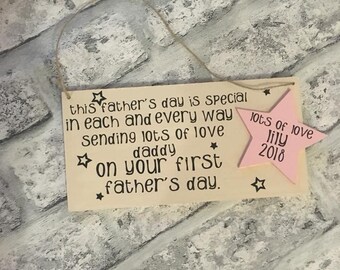 this father's day is special
in each and every way
sending lots of love
daddy
on your first
father's day.
lots of love
lily
2018